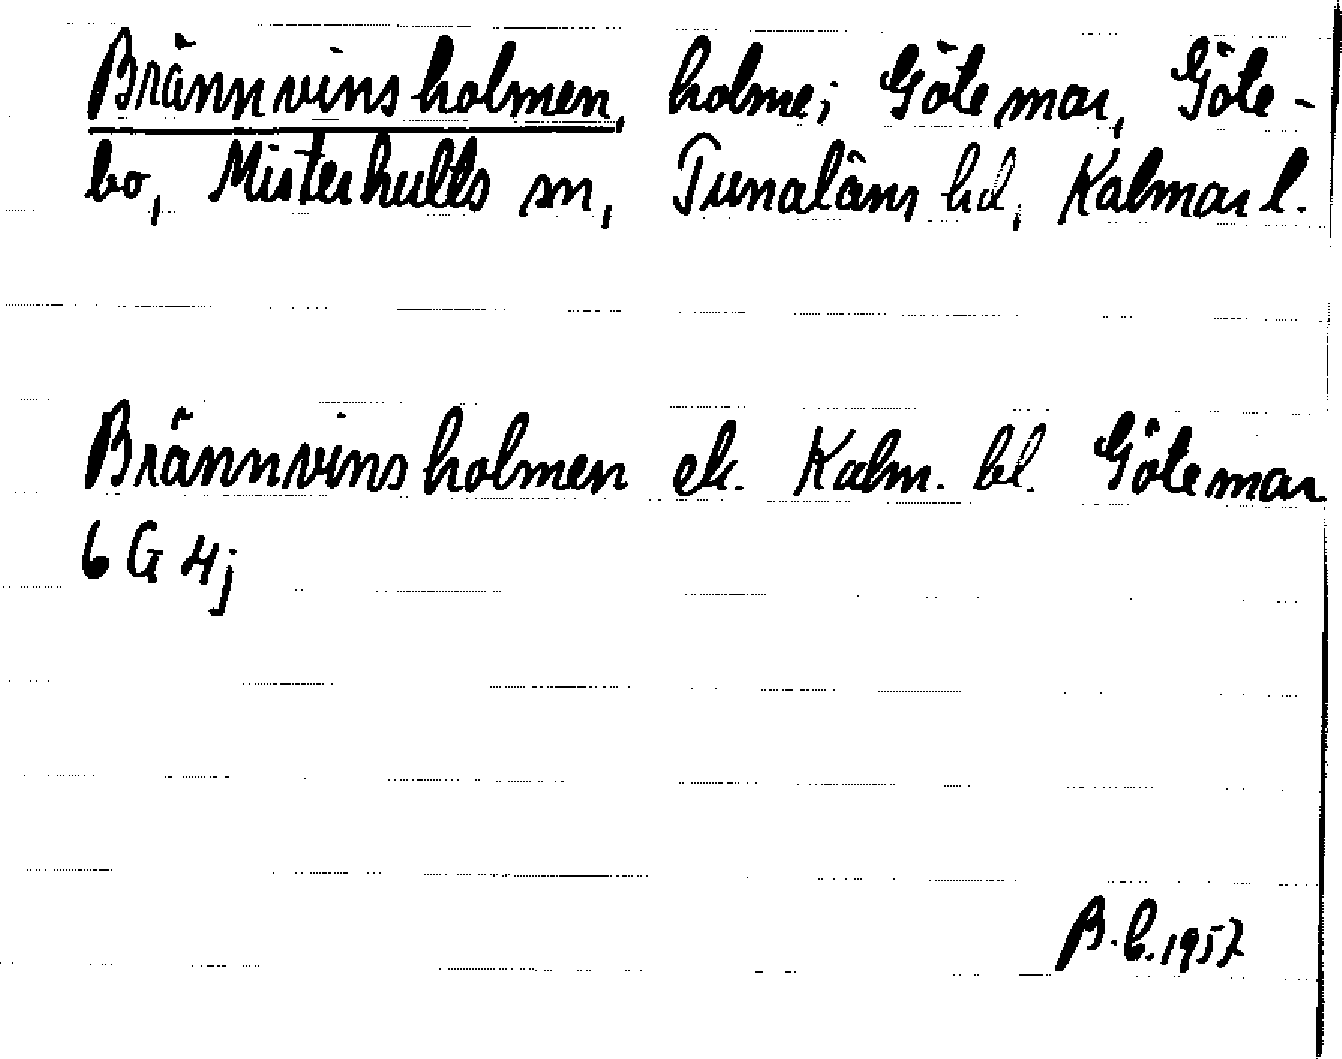 Brännvinsholmen, holme i Götemar, Göte-
bo, Misterhults sn, Tunaläns hd, Kalmar l.
Brännvinsholmen ek. Kalm. bl. Götemar
6 G 4j
B.L. 1957